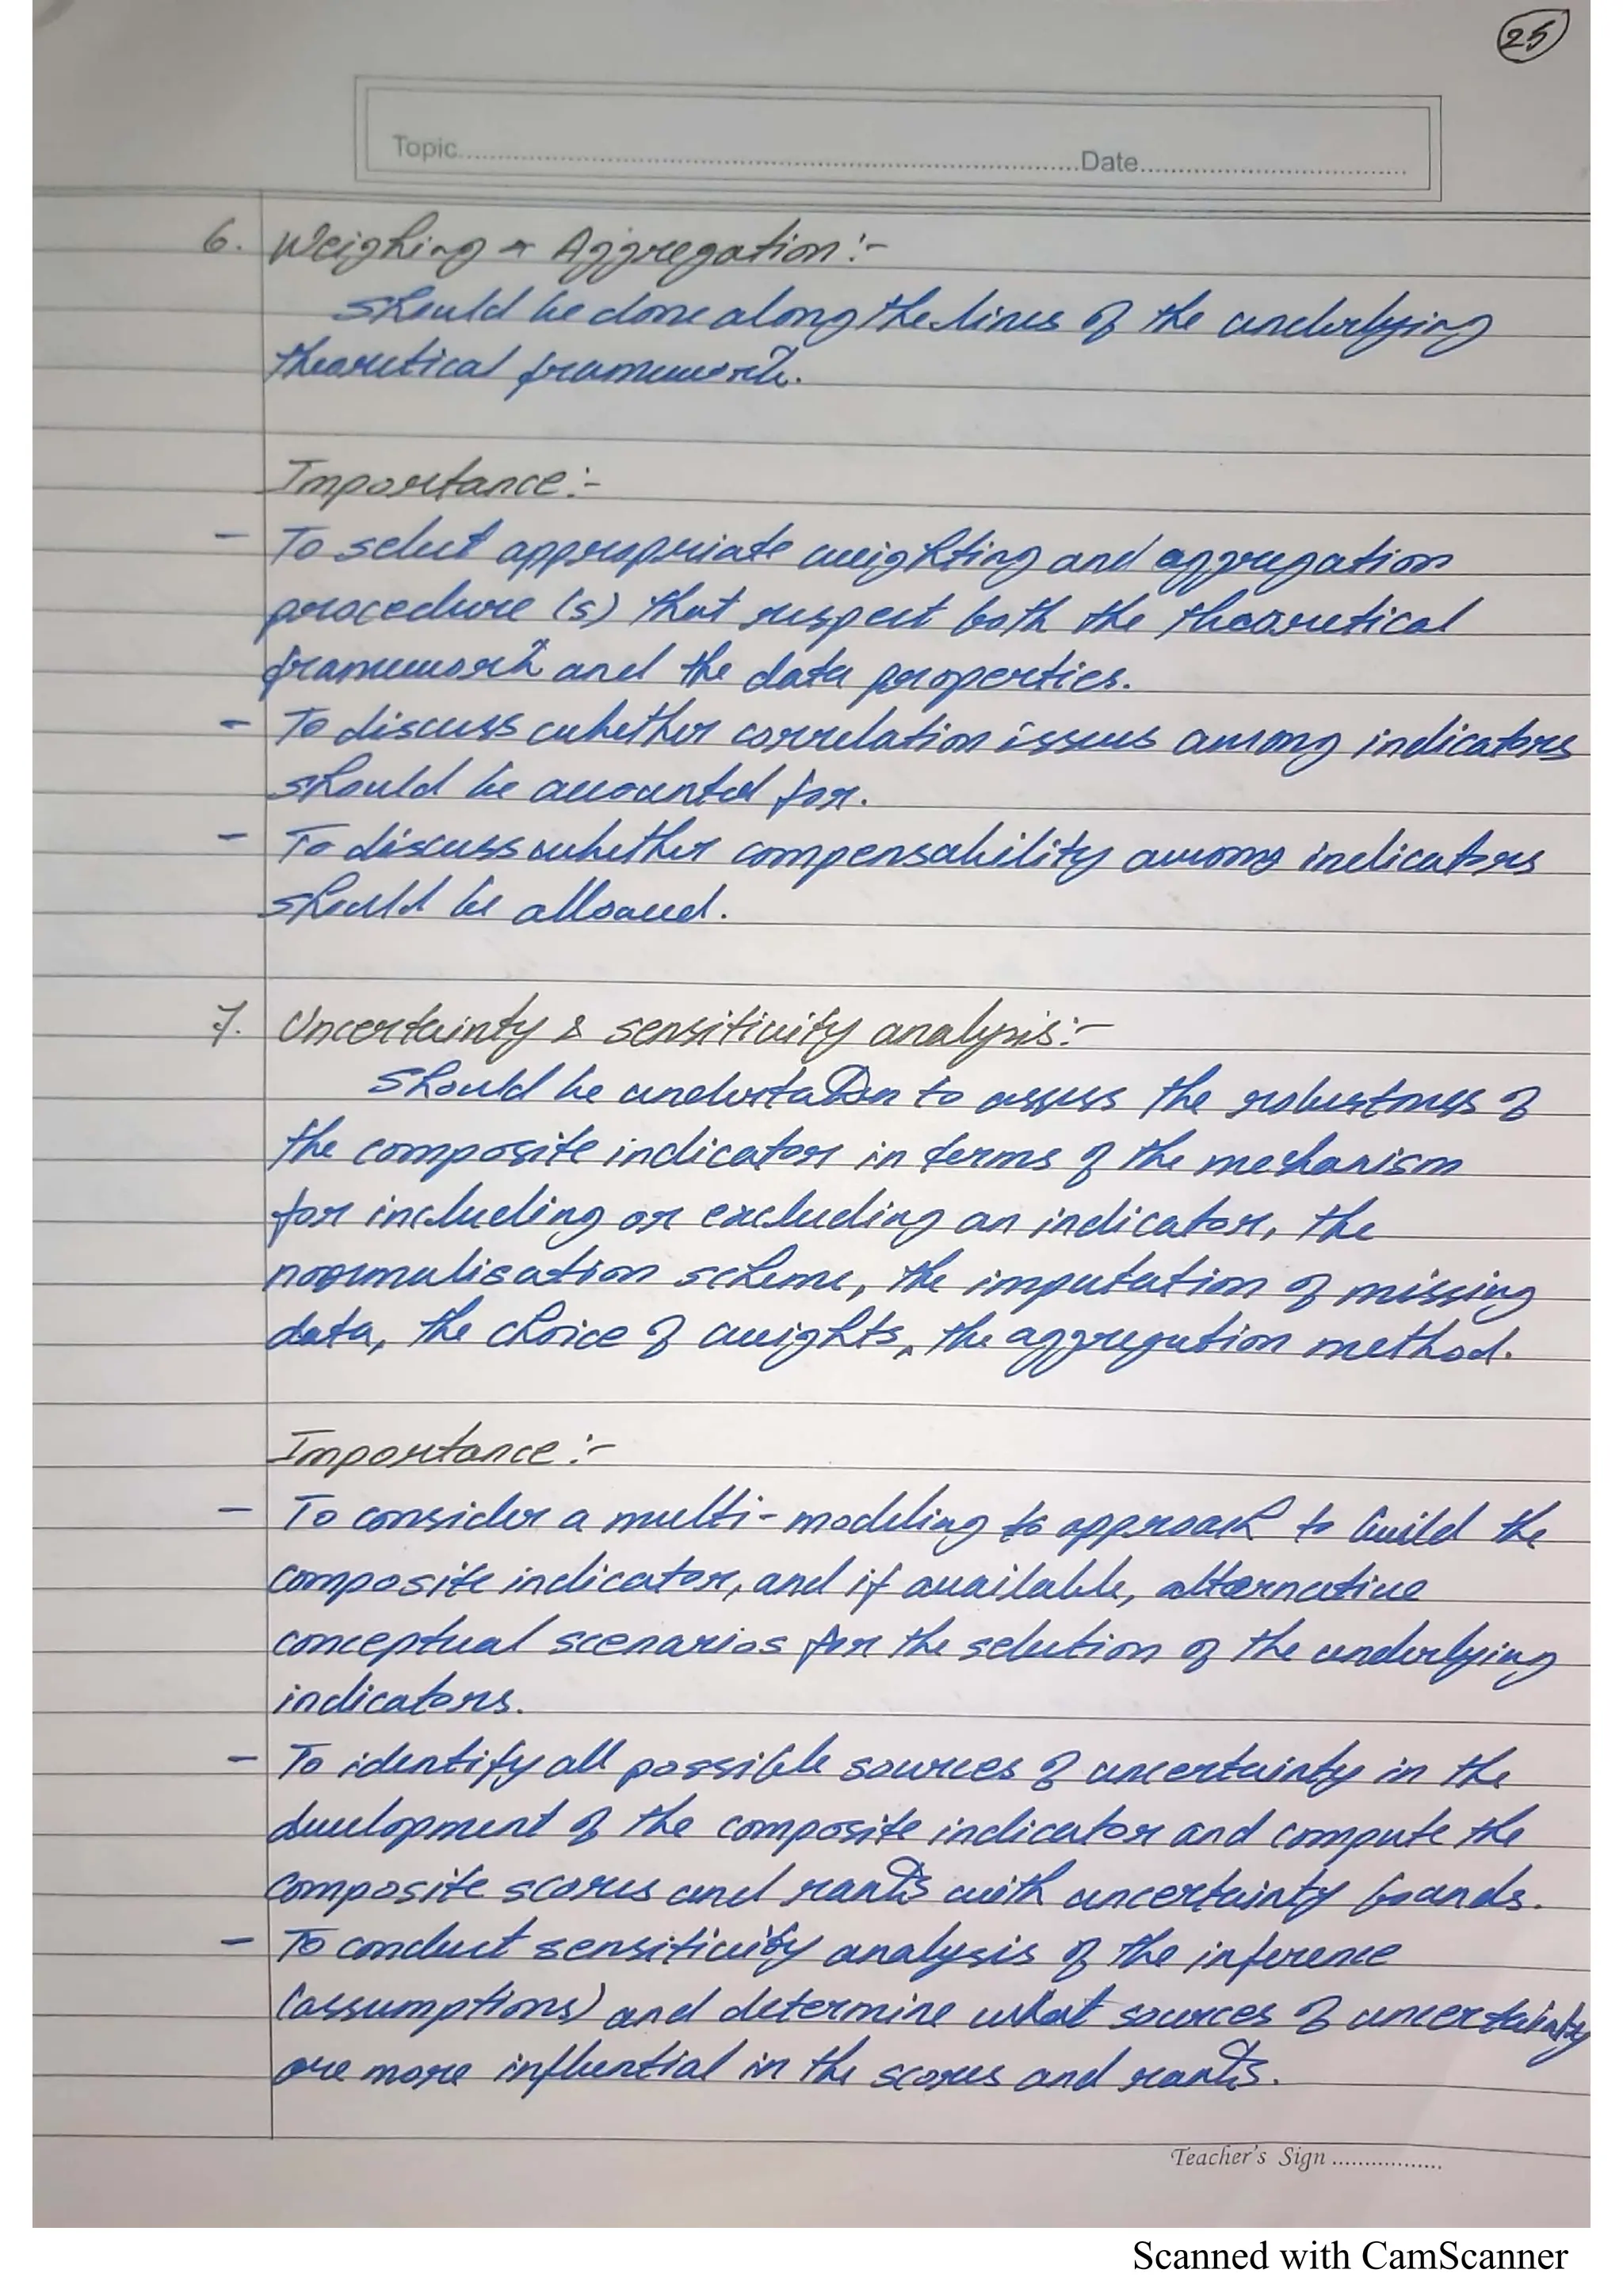 25
Topic..........Date..........
6. Weighing & Aggregation:-
should be done along the lines of the underlying
theoretical framework.
Importance:-
- To select appropriate weighting and aggregation
procedure (s) that respect both the theoretical
framework and the data properties.
- To discuss whether correlation issues among indicators
should be accounted for.
- To discuss whether compensability among indicators
should be allowed.
7. Uncertainty & sensitivity analysis:-
Should be undertaken to assess the robustness of
the composite indicator in terms of the mechanism
for including or excluding an indicator, the
normalisation scheme, the imputation of missing
data, the choice of weights, the aggregation method.
Importance:-
- To consider a multi-modeling to approach to build the
composite indicator, and if available, alternative
conceptual scenarios for the selection of the underlying
indicators.
- To identify all possible sources of uncertainty in the
development of the composite indicator and compute the
composite scores and ranks with uncertainty bounds.
- To conduct sensitivity analysis of the inference
(assumptions) and determine what sources of uncertainty
are more influential in the scores and ranks.
Teacher's Sign ..................
Scanned with CamScanner